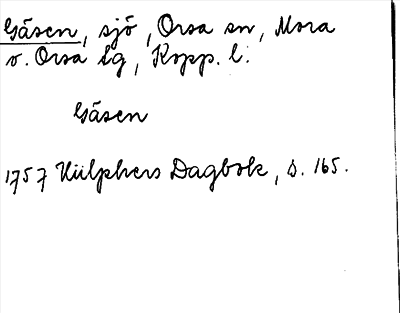 Gåsen, sjö, Orsa sn, Mora
o. Orsa tg, Kopp. l.
Gåsen
1757 Hülphers Dagbok, s. 165.